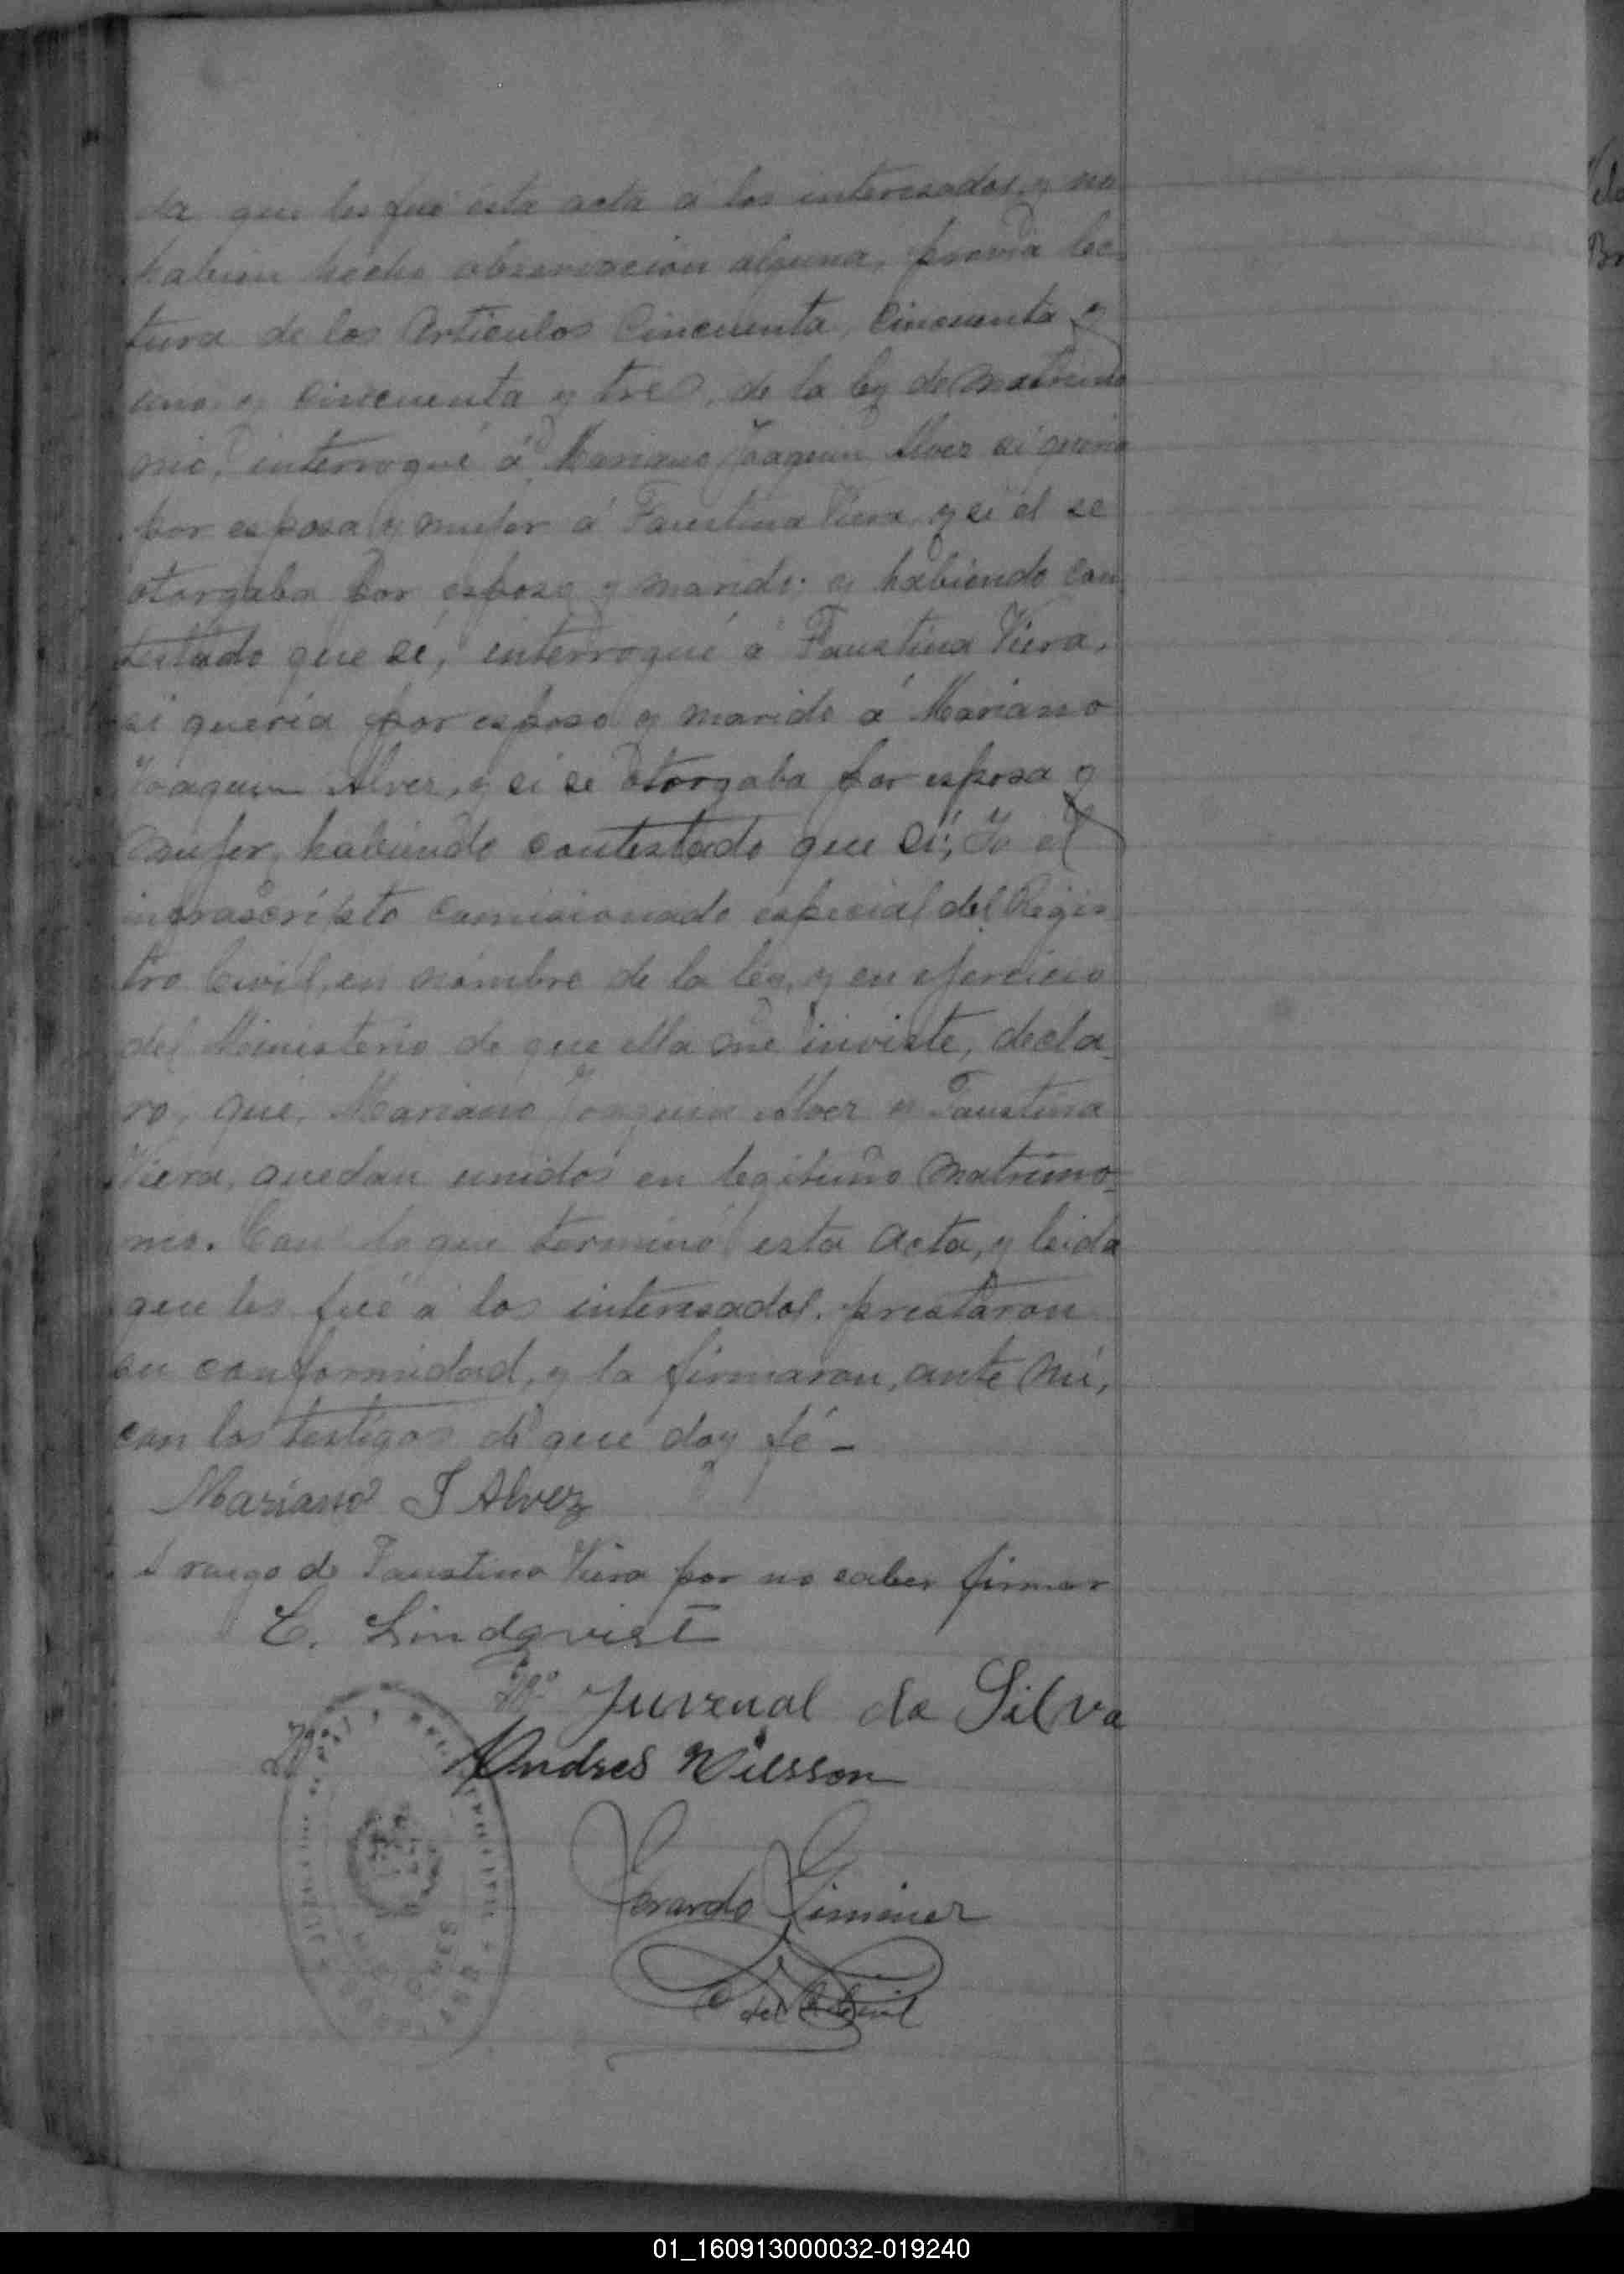 da que les fué esta acta á los interesados, y no
habien hecho observacion alguna, previa lec-
tura de los Articulos Cincuenta, Cincuenta y
uno, y cincuenta y tres, de la ley de Matrimo
nio, interrogué á Mariano Joaquin Alvez si queria
por esposa y mujer á Faustina Viera, y si el se
otorgaba por esposo y marido; y habiendo con
testado que sí, interrogué á Faustina Viera,
si queria por esposo y marido á Mariano
Joaquin Alvez, y si se otorgaba por esposa y
mujer, habiendo contestado que sí; Yo el
infrascripto comisionado especial del Regis
tro Civil, en nombre de la ley, y en ejercicio
del Ministerio de que ella me inviste, decla-
ro, que, Mariano Joaquin Alvez y Faustina
Viera, quedan unidos en legitimo Matrimo-
nio. Con lo que terminó esta Acta, y leida
que les fué a los interesados, prestaron
su conformidad, y la firmaron, ante mí,
con los testigos de que doy fé -
Mariano J Alvez
A ruego de Faustina Viera por no saber firmar
C. Lindqvist
Juvenal da Silva
Andres Nilsson
Gerardo Giminez
del R Civil
01_160913000032-019240